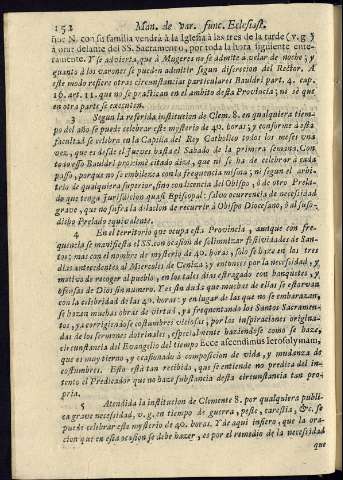 152 Man. de var. func. Eclesiast.
que N. con su familia vendrà à la Iglesia à las tres de la tarde (v.g.)
à orar delante del SS. Sacramento, por toda la hora siguiente ente-
ramente. Y se advierta, que à Mugeres no se admite à velar de noche; y
quanto à los varones se pueden admitir segun discrecion del Rector. A
este modo refiere otras circunstancias particulares Bauldri part. 4. cap.
16. art. 11. que no se practican en el ambito desta Provincia; ni sè que
en otra parte se executen.
3 Segun la referida institucion de Clem. 8. en qualquiera tiem-
po del año se puede celebrar este mysterio de 40. horas; y conforme à esta
facultad se celebra en la Capilla del Rey Catholico todos los meses una
vez, que es desde el Jueves hasta el Sabado de la primera semana. Con
todo esso Bauldri proximè citado dize, que ni se ha de celebrar à cada
passo, porque no se embilezca con la frequencia misma; ni segun el arbi-
trio de qualquiera superior, sino con licencia del Obispo, ò de otro Prela-
do que tenga jurisdicion quasi Episcopal: salvo ocurrencia de necessidad
grave, que no sufra la dilacion de recurrir à Obispo Diocesano, ò al suso-
dicho Prelado equivalente.
4 En el territorio que ocupa esta Provincia, aunque con fre-
quencia se manifiesta el SS. con ocasion de solemnizar festividades de San-
tos; mas con el nombre de mysterio de 40. horas; solo se haze en los tres
dias antecedentes al Miercoles de Ceniza; y entonces por la necessidad, y
motivo de recoger al pueblo, en los tales dias estragado con banquetes, y
ofensas de Dios sin numero. Y es sin duda que muchas de ellas se estorvan
con la celebridad de las 40. horas: y en lugar de las que no se embarazan,
se hazen muchas obras de virtud, ya frequentando los Santos Sacramen-
tos, ya corrigiendose costumbres viciosas; por las inspiraciones origina-
das de los sermones dotrinales, especialmente haziendose como se haze,
circunstancia del Evangelio del tiempo Ecce ascendimus Ierosolymam,
que es muy tierno, y ocasionado à composicion de vida, y mudanza de
costumbres. Esta està tan recibida, que se entiende no predica del in-
tento el Predicador que no haze substancia desta circunstancia tan pro-
pria.
5 Atendida la institucion de Clemente 8. por qualquiera publi-
ca grave necessidad, v.g. en tiempo de guerra, peste, carestia, &c. se
puede celebrar este mysterio de 40. horas. Y de aqui infiero, que la ora-
cion que en esta ocasion se debe hazer, es por el remedio de la necessidad
que